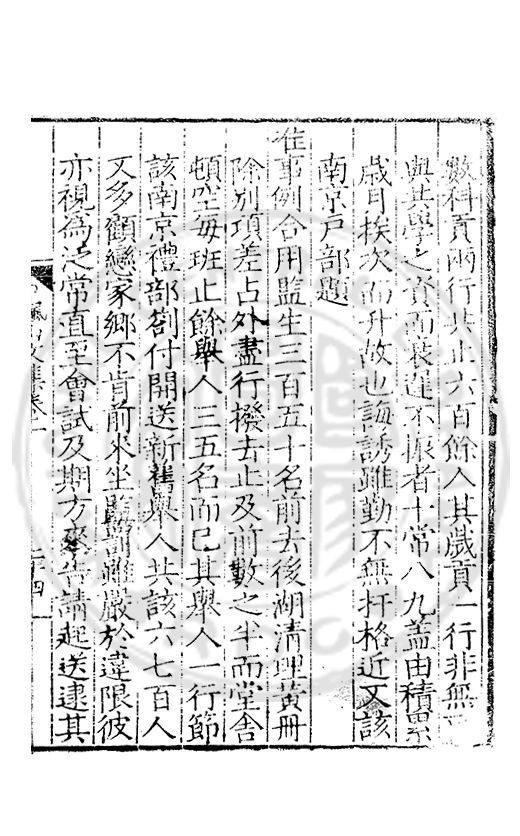 數科貢兩行共止六百餘人其歲貢一行非無
與共學之資而衰遲不振者十常八九蓋由積累
歲月挨次而升故也誨誘雖勤不無扞格近又該
南京戶部題
准事例合用監生三百五十名前去後湖清理黃冊
除別項差占外盡行撥去止及前數之半而堂舍
頓空每班止餘舉人三五名而已其舉人一行節
該南京禮部劄付開送新舊舉人共該六七百人
又多顧戀家鄉不肯前來坐監雖嚴於違限彼
亦視為泛常直至會試及期方來告請起送逮其
楓山文集卷一
二十四